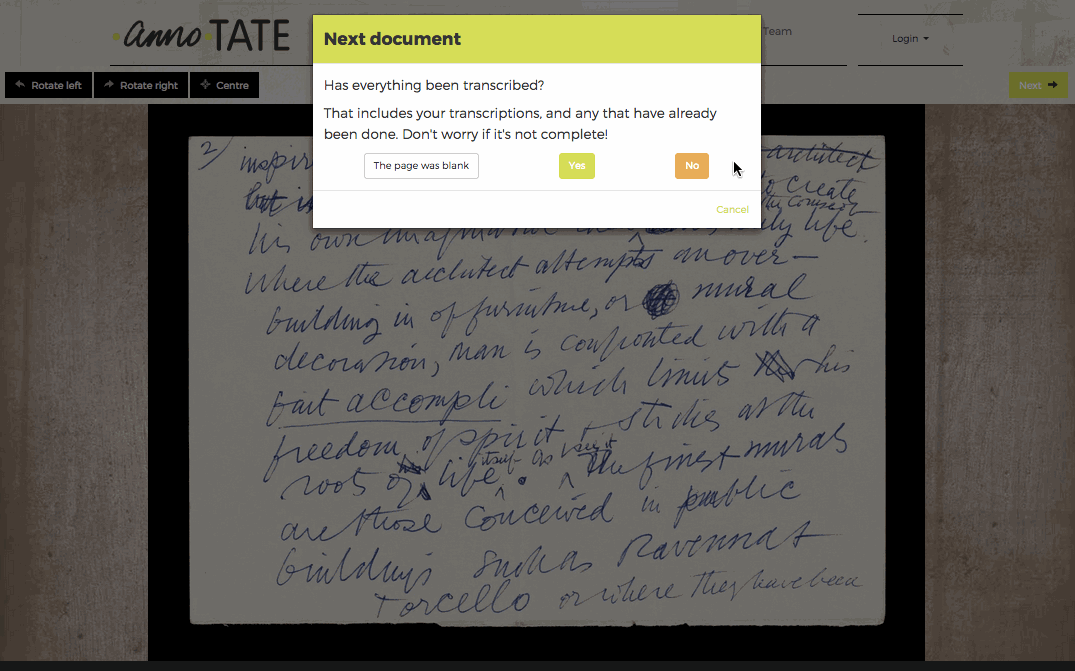 anno TATE
Team
Login
Rotate left
Rotate right
Centre
Next
Next document
Has everything been transcribed?
That includes your transcriptions, and any that have already
been done. Don't worry if it's not complete!
The page was blank
Yes
No
Cancel
2)
inspir architect
but is to create
his own daily life.
Where the architect attempts an over—
building in of furniture, or mural
decoration, man is confronted with a
fait accompli which limits his
freedom of spirit + strikes at the
itself as I see it
roots of life. The finest murals
are those conceived in public
buildings such as Ravenna +
Torcello or where they have been